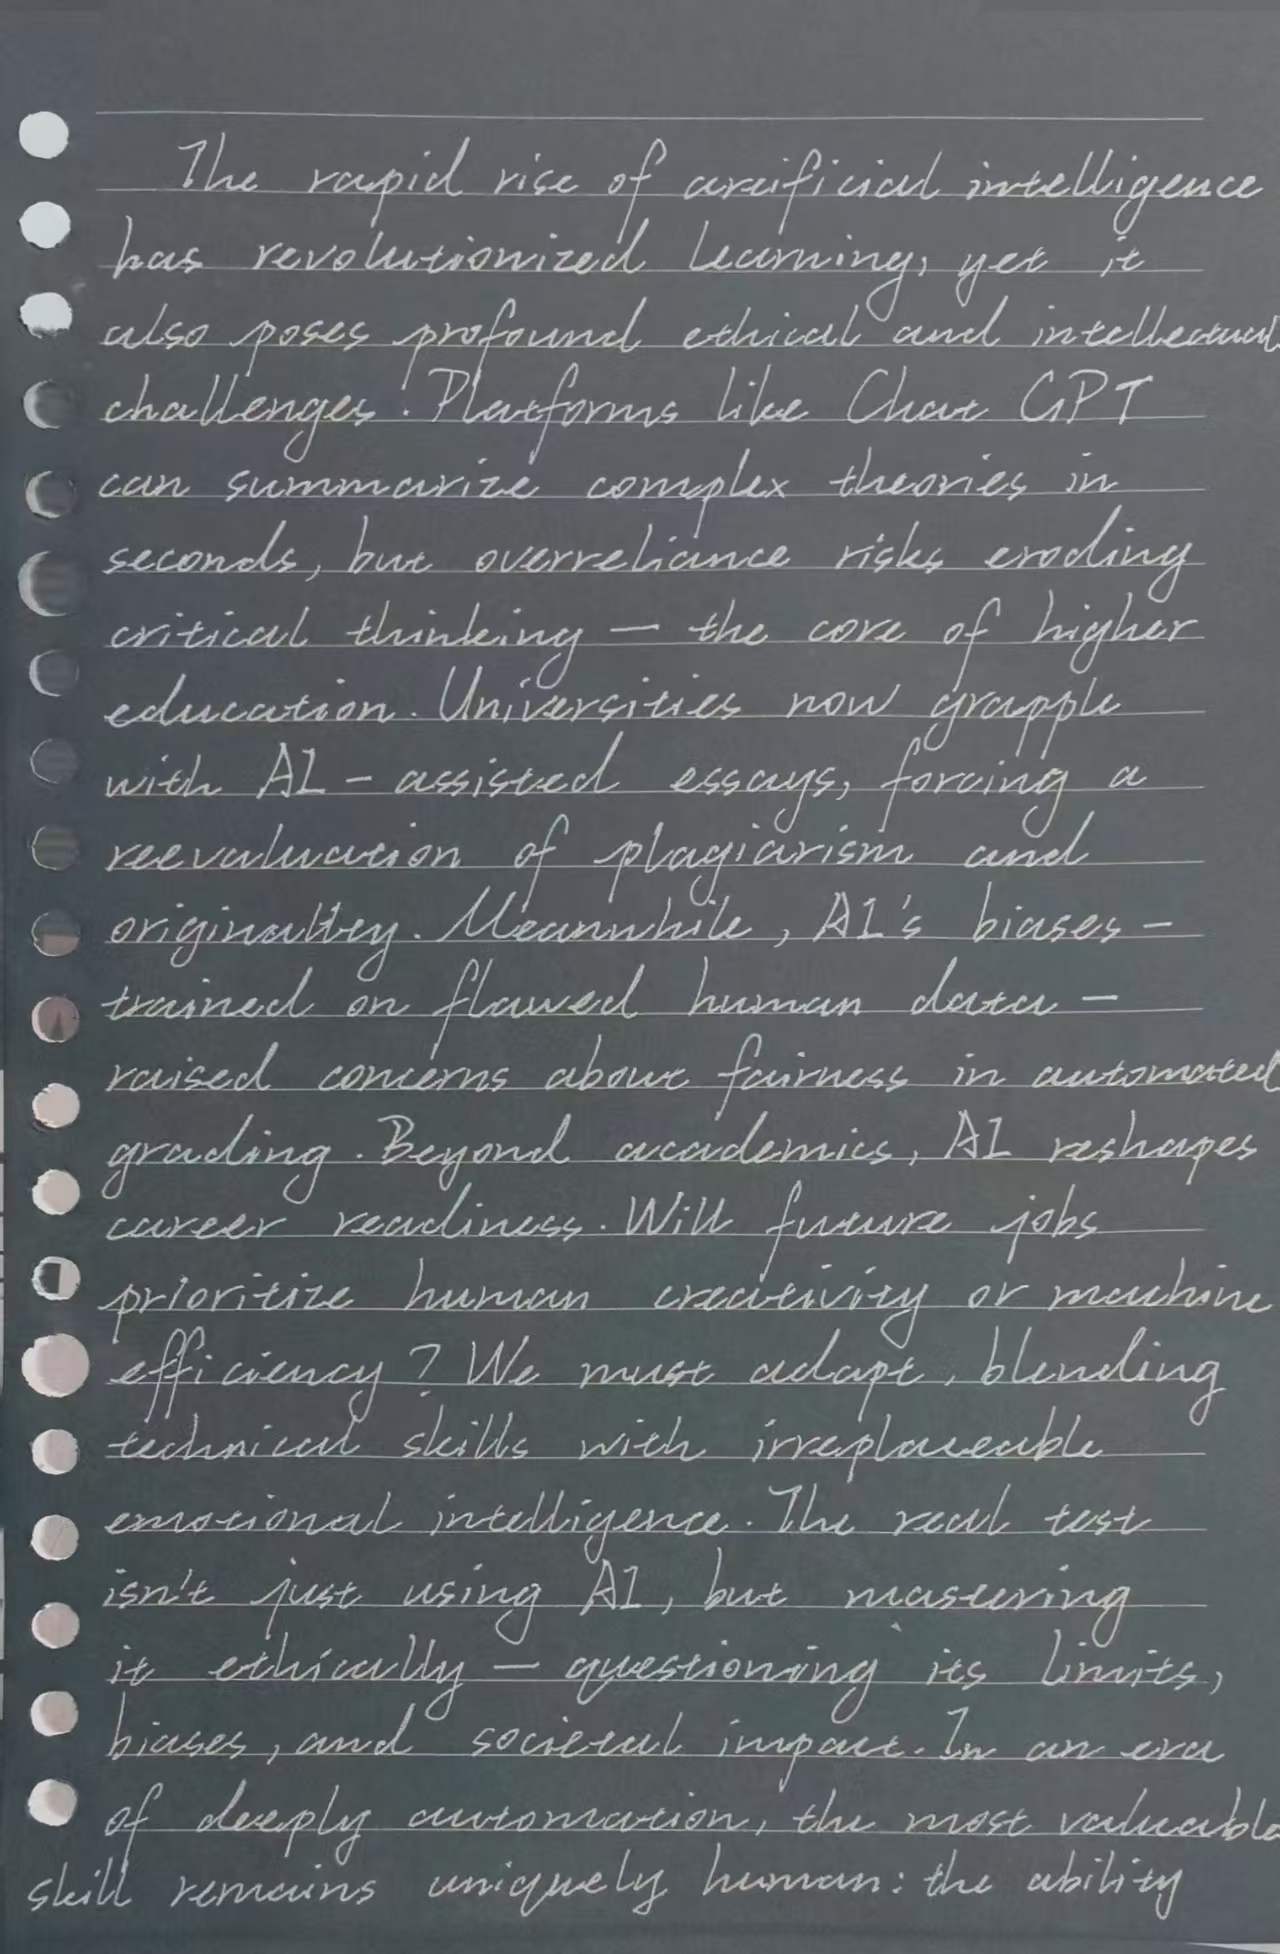 The rapid rise of artificial intelligence
has revolutionized learning, yet it
also poses profound ethical and intellectual
challenges. Platforms like Chat GPT
can summarize complex theories in
seconds, but overreliance risks eroding
critical thinking — the core of higher
education. Universities now grapple
with AI - assisted essays, forcing a
reevaluation of plagiarism and
originaltey. Meanwhile, AI's biases —
trained on flawed human data —
raised concerns about fairness in automated
grading. Beyond academics, AI reshapes
career readiness. Will future jobs
prioritize human creativity or machine
efficiency? We must adapt, blending
technical skills with irreplaceable
emotional intelligence. The real test
isn't just using AI, but mastering
it ethically — questioning its limits,
biases, and societal impact. In an era
of deeply automation, the most valuable
skill remains uniquely human: the ability